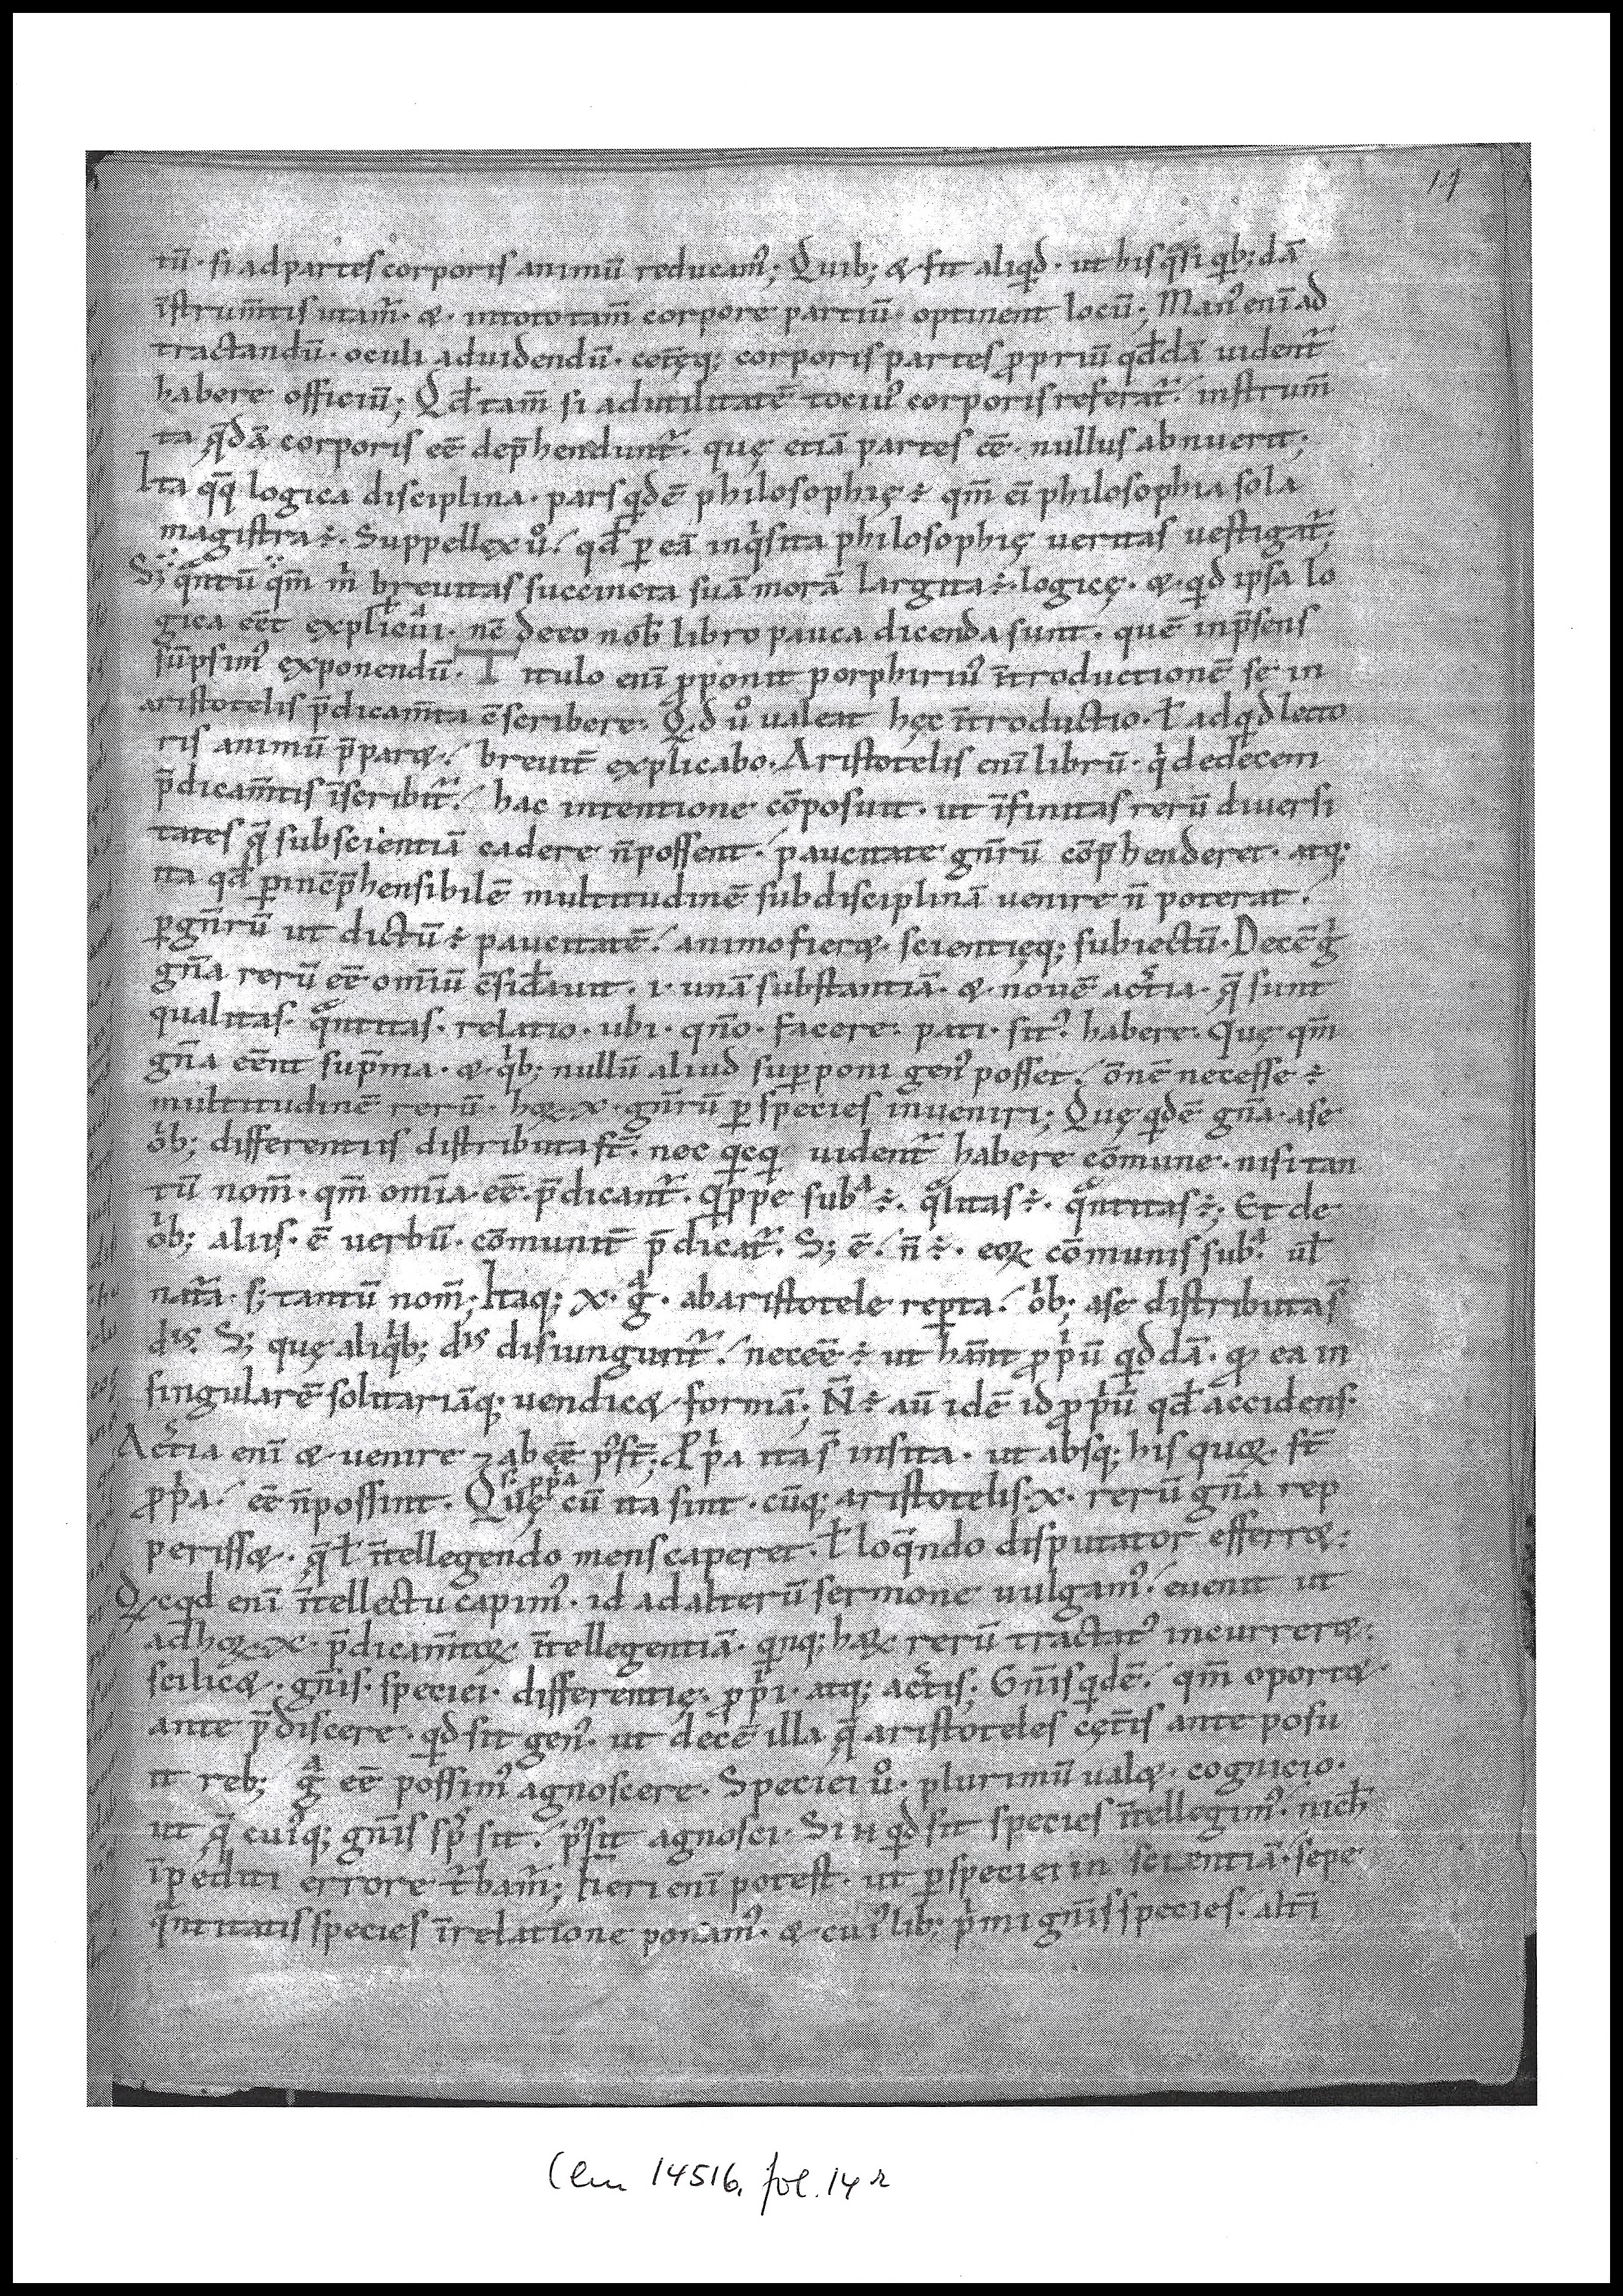 14
tū· si adpartes corporis animū reducam᷒; Quib; & fit aliqͥd· ut his qͣsi qͥb;dā
īstrum̄tis utam̄· &· intoto tam̄ corpore partiū optinent locū; Man᷒ enī ad
tractandū· oculi aduidendū· cet̄ęq; corporis partes ꝓpriū qđdā uident̄
habere officiū; Qđ tam̄ si adutilitatē tociu᷒ corporis referat̄·/ instrum̄
ta q̄dā corporis eē dep̄hendunt̄· quę etiā partes eē· nullus abnuerit;
Ita qq̄ logica disciplina· pars qͥdē philosophię ÷ qm̄ eī philosophia sola
magistra ÷· Suppellex uͦ·/ qđ ꝑ eā inqͥsita philosophię ueritas uestigat̄;
S; qͣntū qm̄ m̄ breuitas succincta suā morā largita ÷· logicę· &· qͥd ipsa lo
gica eēt explicūi· nc̄ deeo nob̄ libro pauca dicenda sunt· quē inp̄sens
sūpsim᷒ exponendū· Titulo enī ꝓponit porphiriu᷒ īntroductionē se in
aristotelis p̄dicam̄ta c̄scribere· Qͥd uͦ ualeat hęc īntroductio· ł adqͥd lecto
ris animū p̄par&·/ breuit̄ explicabo· Aristotelis enī librū· qͥ dedecem
p̄dicam̄tis īscribit̄·/ hac intentione cōposuit· ut īfinitas rerū diuersi
tates q̄ subscientiā cadere n̄possent·/ paucitate gn̄rū cōp̄henderet· atq;
ita qđ ꝑinc̄p̄hensibilē multitudinē subdisciplinā uenire n̄ poterat·
ꝑgn̄rū ut dictū ÷ paucitatē·/ animo fier&· scientięq; subiectū· Decē gͥ
gn̄a rerū eē om̄iū c̄siđauit· ı· unā substantiā· &· nouē ac̄tia· q̄ sunt
qualitas· qͣntitas· relatio· ubi· qn̄o· facere· pati· sit᷒· habere· Quę qm̄
gn̄a eēnt sup̄ma· &· qͥb; nullū aliud suꝑponi gen᷒ posset·/ ōnē necesse ÷
multitudinē rerū· hoꝝ· x· gn̄rū ꝑ species inueniri; Quę qͥdē gn̄a· ase
oͥb; differentiis distributa st̄· nec qͥcqͥ uident̄ habere cōmune· nisi tan
tū nom̄· qm̄ om̄ia· eē· p̄dicant̄· qͥppe subͣ ÷· qͣlitas ÷· qͣntitas ÷; Et de
oͥb; aliis· ē uerbū· cōmunit̄ p̄dicat̄· S; ē·/ n̄ ÷· eoꝝ cōmunis subͣ· uł
nat̄a· s; tantū nom̄; Itaq; x· gͣ· abaristotele reꝑta·/ oͥb; ase distributas̄
dⁱˢ· S; quę aliqͥb; dⁱˢ disiungunt̄·/ neceē ÷ ut han̄t ꝓpͥū qͦddā· qͦ ea in
singularē solitariāq; uendic& formā; N̄ ÷ aū idē id ꝓpͥū qđ accidens·
Ac̄tia enī & uenire ⁊ ab eē p᷒st̄; Ꝓpͥa ita s̄ insita· ut absq; his quę· st̄
ꝓpͥa·/ eē n̄possint· Quę cū ita sint· cūq; aristotelis· x· rerū gn̄a rep
periss&· q̄ ł īntellegendo mens caperet· ł loqͣndo disputator efferr&:
Qͥcqd enī īntellectu capim᷒· id ad alterū sermone uulgam᷒·/ euenit ut
adhoꝝ· x· p̄dicam̄toꝝ īntellegentiā· qͥnq; haꝝ rerū tractat᷒ incurrer&:
scilic&· gn̄is· speciei· differentię· ꝓpͥi· atq; ac̄tis; Gn̄is qͥdē·/ qm̄ oport&·
ante p̄discere· qͥd sit gen᷒· ut decē illa q̄ aristoteles cęt̄is ante posu
it reb; gͣ eē possim᷒ agnoscere· Speciei uͦ· plurimū ual& cognicio·
ut q̄ cui᷒q; gn̄is sp̄s sit·/ p᷒sit agnosci· Si n̄ qͥd sit species īntellegim᷒· nich̄
īpediti errore t̄bam̄; Fieri enī potest· ut ꝑspeciei in scientiā·/ sepe
qͣntitatis species ī relatione ponam᷒· & cui᷒lib; pͥmi gn̄is species·/ alt̄i
Clm 14516, fol. 14 r